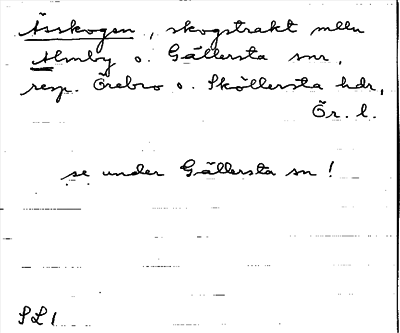 Åsskogen, skogstrakt mellu
Almby o. Gällersta snr,
resp. Örebro o. Sköllersta hdr,
Ör. l.
se under Gällersta sn!
SL1